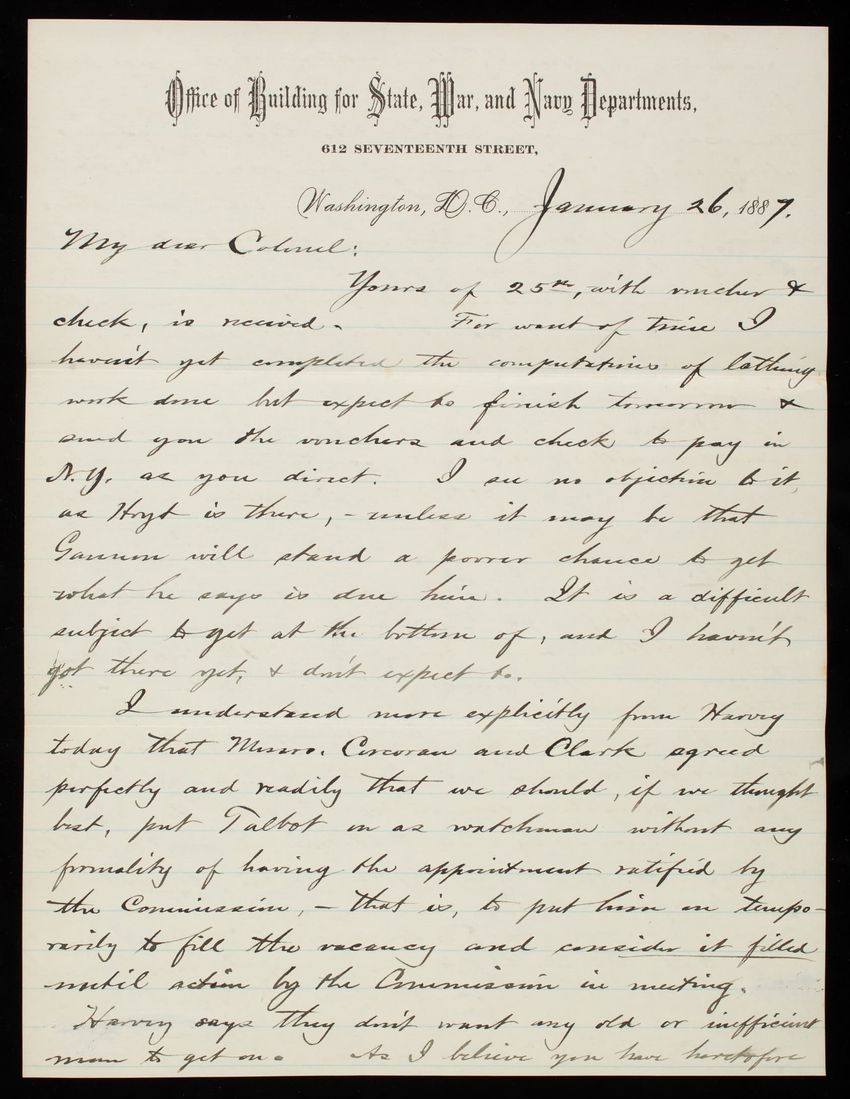 Office of Building for State, War, and Navy Departments,
612 SEVENTEENTH STREET,
Washington, D.C., January 26, 1887.
My dear Colonel:
Yours of 25th, with voucher &
check, is received. For want of time I
haven't yet completed the computations of lathing
work done but expect to finish tomorrow &
send you the vouchers and check to pay in
N.Y. as you direct. I see no objection to it,
as Hoyt is there, - unless it may be that
Gannon will stand a poorer chance to get
what he says is due him. It is a difficult
subject to get at the bottom of, and I haven't
got there yet, & don't expect to.
I understand more explicitly from Harvey
today that Messrs. Corcoran and Clark agreed
perfectly and readily that we should, if we thought
best, put Talbot on as watchman without any
formality of having the appointment ratified by
the Commission, - that is, to put him on tempo-
rarily to fill the vacancy and consider it filled
until action by the Commission in meeting.
Harvey says they don't want any old or inefficient
man to get on. As I believe you have heretofore